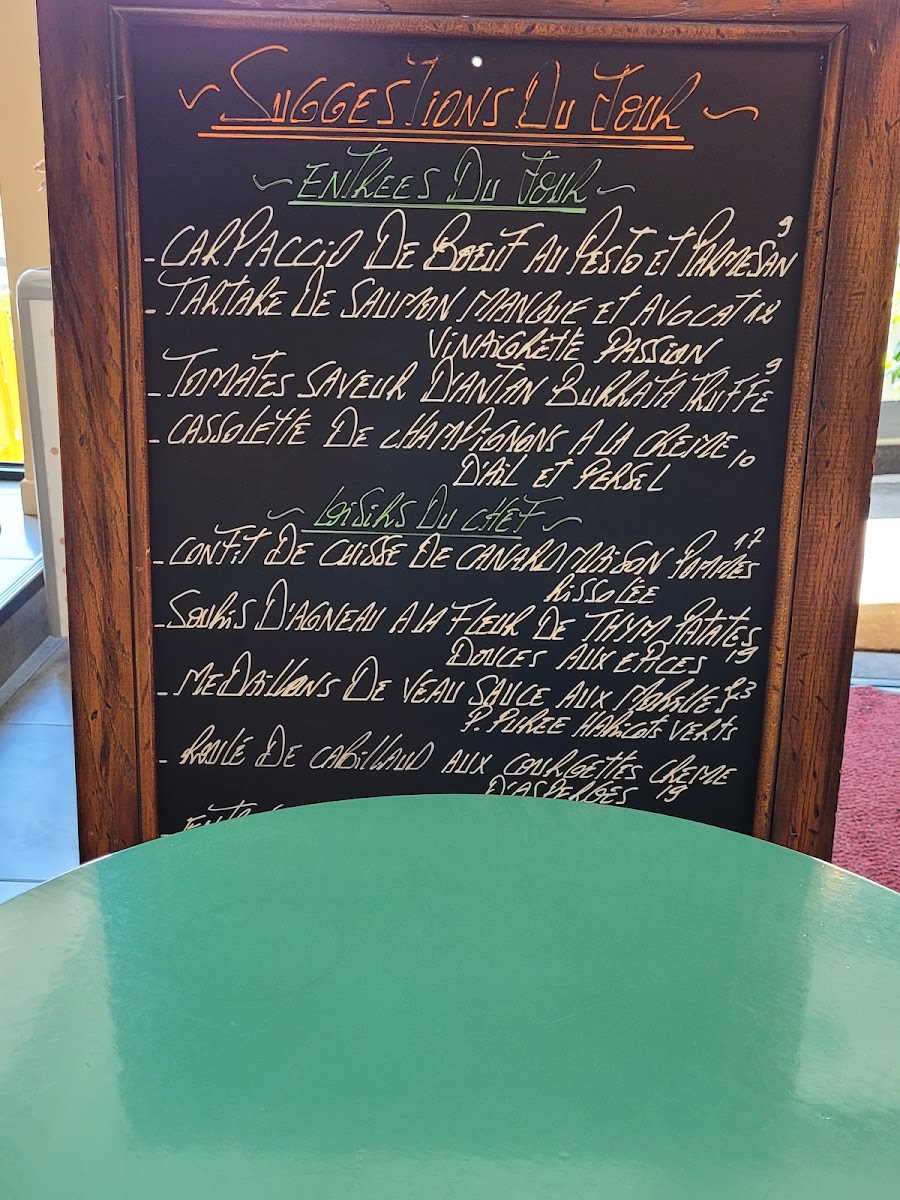 ~ SUGGESTIONS DU JOUR ~
~ ENTREES DU JOUR ~
- CARPACCIO DE BOEUF AU PESTO ET PARMESAN 9
- TARTARE DE SAUMON MANGUE ET AVOCAT 12
VINAIGRETTE PASSION
- TOMATES SAVEUR D'ANTAN BURRATA TRUFFE 9
- CASSOLETTE DE CHAMPIGNONS A LA CREME 10
D'AIL ET PERSIL
~ LOISIRS DU CHEF ~
- CONFIT DE CUISSE DE CANARD MAISON POMMES 17
RISSOLEE
- SOURIS D'AGNEAU A LA FLEUR DE THYM PATATES
DOUCES AUX EPICES 19
- MEDAILLONS DE VEAU SAUCE AUX MORILLES 23
P. PUREE HARICOTS VERTS
- ROULÉ DE CABILLAUD AUX COURGETTES CREME
D'ASPERGES 19